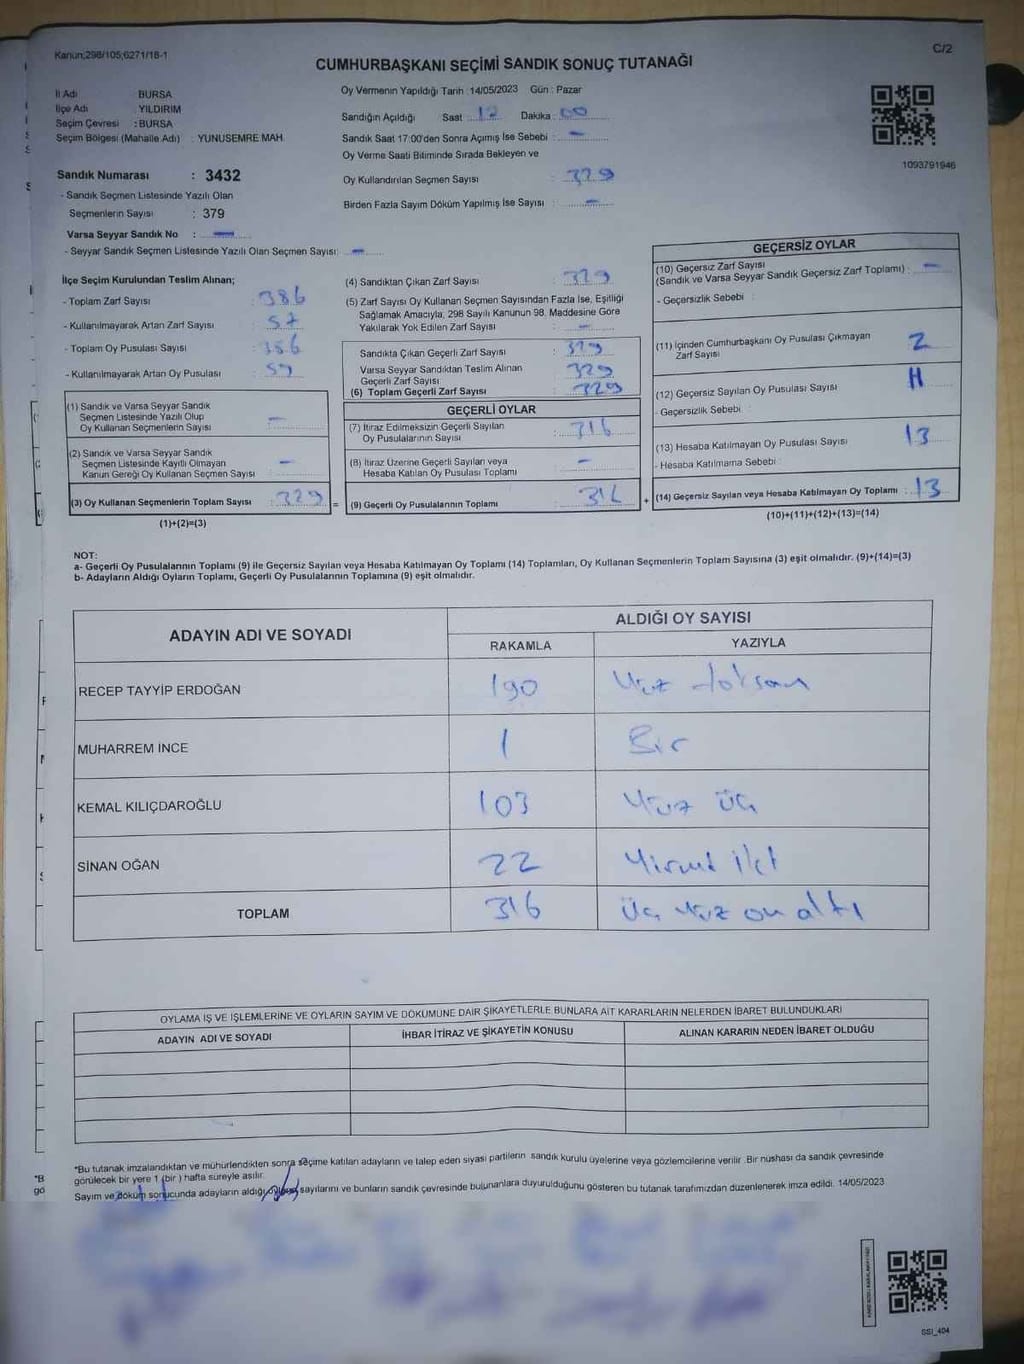 Kanun;298/105;6271/18-1
C/2
CUMHURBAŞKANI SEÇİMİ SANDIK SONUÇ TUTANAĞI
İl Adı BURSA
İlçe Adı YILDIRIM
Seçim Çevresi : BURSA
Seçim Bölgesi (Mahalle Adı) : YUNUSEMRE MAH.
Sandık Numarası : 3432
- Sandık Seçmen Listesinde Yazılı Olan
Seçmenlerin Sayısı : 379
Varsa Seyyar Sandık No : —
- Seyyar Sandık Seçmen Listesinde Yazılı Olan Seçmen Sayısı: —
Oy Vermenin Yapıldığı Tarih : 14/05/2023 Gün : Pazar
Sandığın Açıldığı Saat : 17 Dakika : 00
Sandık Saat 17:00'den Sonra Açımış İse Sebebi : —
Oy Verme Saati Bitiminde Sırada Bekleyen ve
Oy Kullandırılan Seçmen Sayısı : 329
Birden Fazla Sayım Döküm Yapılmış İse Sayısı : —
1093791946
İlçe Seçim Kurulundan Teslim Alınan;
- Toplam Zarf Sayısı : 386
- Kullanılmayarak Artan Zarf Sayısı : 57
- Toplam Oy Pusulası Sayısı : 386
- Kullanılmayarak Artan Oy Pusulası : 57
(1) Sandık ve Varsa Seyyar Sandık
Seçmen Listesinde Yazılı Olup
Oy Kullanan Seçmenlerin Sayısı : —
(2) Sandık ve Varsa Seyyar Sandık
Seçmen Listesinde Kayıtlı Olmayan
Kanun Gereği Oy Kullanan Seçmen Sayısı : —
(3) Oy Kullanan Seçmenlerin Toplam Sayısı : 329 =
(1)+(2)=(3)
(4) Sandıktan Çıkan Zarf Sayısı : 329
(5) Zarf Sayısı Oy Kullanan Seçmen Sayısından Fazla İse, Eşitliği
Sağlamak Amacıyla, 298 Sayılı Kanunun 98. Maddesine Göre
Yakılarak Yok Edilen Zarf Sayısı : —
Sandıkta Çıkan Geçerli Zarf Sayısı : 329
Varsa Seyyar Sandıktan Teslim Alınan
Geçerli Zarf Sayısı : 329
(6) Toplam Geçerli Zarf Sayısı : 329
GEÇERLİ OYLAR
(7) İtiraz Edilmeksizin Geçerli Sayılan
Oy Pusulalarının Sayısı : 316
(8) İtiraz Üzerine Geçerli Sayılan veya
Hesaba Katılan Oy Pusulası Toplamı : —
(9) Geçerli Oy Pusulalarının Toplamı : 316 +
GEÇERSİZ OYLAR
(10) Geçersiz Zarf Sayısı
(Sandık ve Varsa Seyyar Sandık Geçersiz Zarf Toplamı) : —
- Geçersizlik Sebebi :
(11) İçinden Cumhurbaşkanı Oy Pusulası Çıkmayan
Zarf Sayısı 2
(12) Geçersiz Sayılan Oy Pusulası Sayısı 11
- Geçersizlik Sebebi :
(13) Hesaba Katılmayan Oy Pusulası Sayısı : 13
- Hesaba Katılmama Sebebi :
(14) Geçersiz Sayılan veya Hesaba Katılmayan Oy Toplamı : 13
(10)+(11)+(12)+(13)=(14)
NOT:
a- Geçerli Oy Pusulalarının Toplamı (9) ile Geçersiz Sayılan veya Hesaba Katılmayan Oy Toplamı (14) Toplamları, Oy Kullanan Seçmenlerin Toplam Sayısına (3) eşit olmalıdır. (9)+(14)=(3)
b- Adayların Aldığı Oyların Toplamı, Geçerli Oy Pusulalarının Toplamına (9) eşit olmalıdır.
ADAYIN ADI VE SOYADI ALDIĞI OY SAYISI
RAKAMLA YAZIYLA
RECEP TAYYİP ERDOĞAN 190 Yüz doksan
MUHARREM İNCE 1 Bir
KEMAL KILIÇDAROĞLU 103 Yüz üç
SİNAN OĞAN 22 Yirmi iki
TOPLAM 316 Üç yüz on altı
OYLAMA İŞ VE İŞLEMLERİNE VE OYLARIN SAYIM VE DÖKÜMÜNE DAİR ŞİKAYETLERLE BUNLARA AİT KARARLARIN NELERDEN İBARET BULUNDUKLARI
ADAYIN ADI VE SOYADI İHBAR İTİRAZ VE ŞİKAYETİN KONUSU ALINAN KARARIN NEDEN İBARET OLDUĞU
*Bu tutanak imzalandıktan ve mühürlendikten sonra seçime katılan adayların ve talep eden siyasi partilerin sandık kurulu üyelerine veya gözlemcilerine verilir. Bir nüshası da sandık çevresinde
görülecek bir yere 1 (bir) hafta süreyle asılır.
Sayım ve döküm sonucunda adayların aldığı sayılarını ve bunların sandık çevresinde bulunanlara duyurulduğunu gösteren bu tutanak tarafımızdan düzenlenerek imza edildi. 14/05/2023
SSİ_404